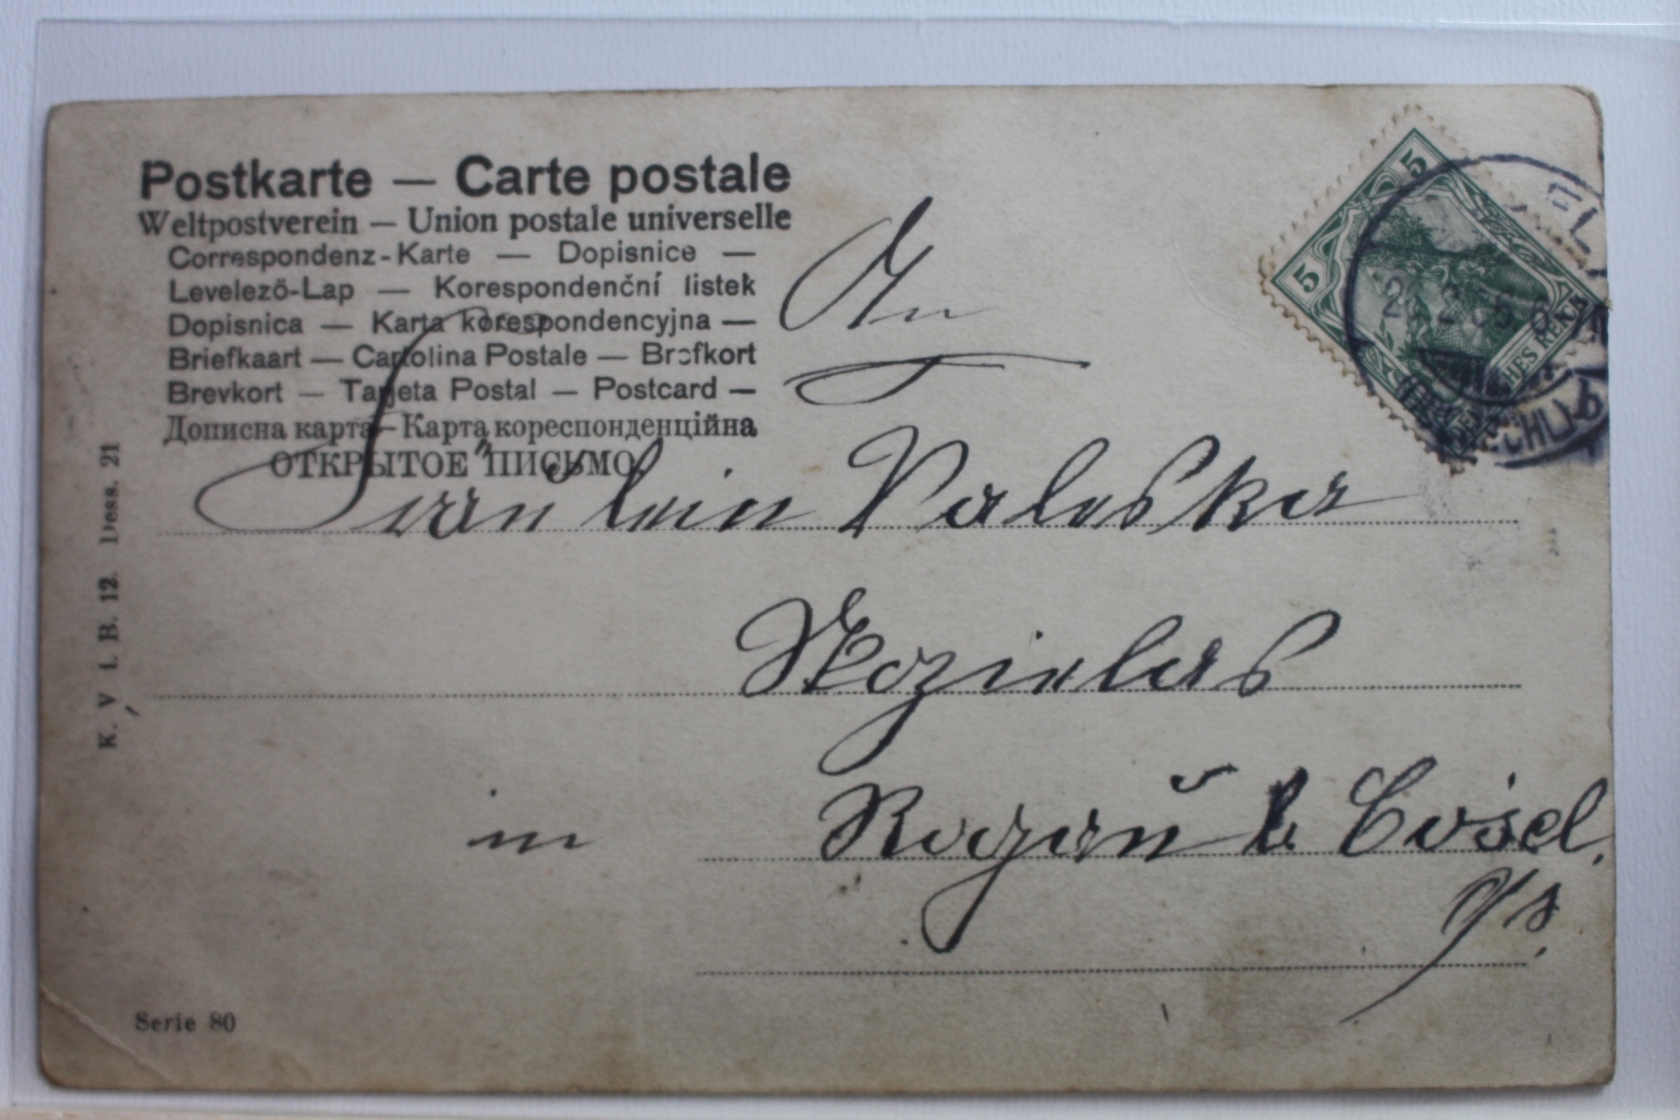 Postkarte — Carte postale
Weltpostverein — Union postale universelle
Correspondenz-Karte — Dopisnice —
Levelező-Lap — Korespondenční listek
Dopisnica — Karta korespondencyjna —
Briefkaart — Cartolina Postale — Brefkort
Brevkort — Tarjeta Postal — Postcard —
Дописна карта — Карта кореспонденційна
ОТКРЫТОЕ ПИСЬМО
An
Fräulein Valeska
in
Cosel.
O/S.
K. V i. B. 12. Dess. 21
Serie 80
5
5